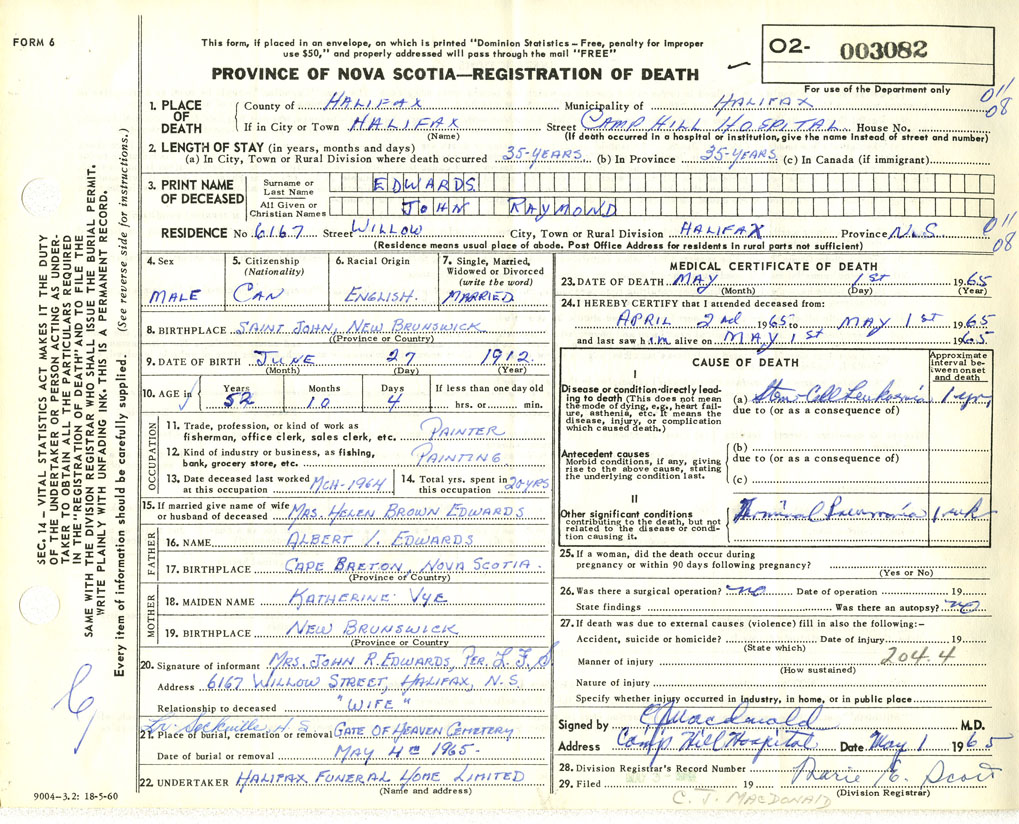 FORM 6
This form, if placed in an envelope, on which is printed "Dominion Statistics – Free, penalty for improper
use $50," and properly addressed will pass through the mail "FREE"
PROVINCE OF NOVA SCOTIA—REGISTRATION OF DEATH
O2- 003082
For use of the Department only
011
08
1. PLACE OF DEATH
County of HALIFAX Municipality of HALIFAX
If in City or Town HALIFAX Street CAMP HILL HOSPITAL House No.
(Name) (If death occurred in a hospital or institution, give the name instead of street and number)
2. LENGTH OF STAY (in years, months and days)
(a) In City, Town or Rural Division where death occurred 35-YEARS (b) In Province 35-YEARS (c) In Canada (if immigrant)
3. PRINT NAME OF DECEASED
Surname or Last Name EDWARDS
All Given or Christian Names JOHN RAYMOND
RESIDENCE No 6167 Street WILLOW City, Town or Rural Division HALIFAX Province N.S
(Residence means usual place of abode. Post Office Address for residents in rural parts not sufficient)
011
08
4. Sex
MALE
5. Citizenship
(Nationality)
CAN
6. Racial Origin
ENGLISH.
7. Single, Married,
Widowed or Divorced
(write the word)
MARRIED
8. BIRTHPLACE SAINT JOHN, NEW BRUNSWICK
(Province or Country)
9. DATE OF BIRTH JUNE 27 1912
(Month) (Day) (Year)
10. AGE in
Years Months Days If less than one day old
52 10 4 hrs. or min.
OCCUPATION
11. Trade, profession, or kind of work as
fisherman, office clerk, sales clerk, etc. PAINTER
12. Kind of industry or business, as fishing,
bank, grocery store, etc. PAINTING
13. Date deceased last worked
at this occupation MCH-1964
14. Total yrs. spent in
this occupation 20 YRS
15. If married give name of wife
or husband of deceased MRS. HELEN BROWN EDWARDS
FATHER
16. NAME ALBERT I. EDWARDS
17. BIRTHPLACE CAPE BRETON, NOVA SCOTIA.
(Province or Country)
MOTHER
18. MAIDEN NAME KATHERINE VYE
19. BIRTHPLACE NEW BRUNSWICK
(Province or Country)
20. Signature of informant MRS. JOHN R. EDWARDS, PER. L.F.S
Address 6167 WILLOW STREET, HALIFAX, N.S.
Relationship to deceased "WIFE"
Lr. Sackville, N.S.
21. Place of burial, cremation or removal GATE OF HEAVEN CEMETERY
Date of burial or removal MAY 4th 1965-
22. UNDERTAKER HALIFAX FUNERAL HOME LIMITED
(Name and address)
9004-3.2: 18-5-60
MEDICAL CERTIFICATE OF DEATH
23. DATE OF DEATH MAY 1st 1965
(Month) (Day) (Year)
24. I HEREBY CERTIFY that I attended deceased from:
APRIL 2nd 1965 to MAY 1st 1965
and last saw him alive on MAY 1st 1965
CAUSE OF DEATH
Approximate interval between onset and death
I
Disease or condition directly leading to death (This does not mean the mode of dying, e.g., heart failure, asthenia, etc. It means the disease, injury, or complication which caused death.)
(a) Stem-Cell Leukaemia 1 yr,
due to (or as a consequence of)
Antecedent causes
Morbid conditions, if any, giving rise to the above cause, stating the underlying condition last.
(b)
due to (or as a consequence of)
(c)
II
Other significant conditions
contributing to the death, but not related to the disease or condition causing it.
Terminal Pneumonia 1 wk
25. If a woman, did the death occur during
pregnancy or within 90 days following pregnancy?
(Yes or No)
26. Was there a surgical operation? no Date of operation 19
State findings Was there an autopsy? no
27. If death was due to external causes (violence) fill in also the following:-
Accident, suicide or homicide? Date of injury 19
(State which)
204.4
Manner of injury
(How sustained)
Nature of injury
Specify whether injury occurred in industry, in home, or in public place
Signed by CJ Macdonald M.D.
Address Camp Hill Hospital Date May 1 1965
28. Division Registrar's Record Number
29. Filed 19 Marie E. Scott
(Division Registrar)
C. J. MACDONALD
SEC. 14 – VITAL STATISTICS ACT MAKES IT THE DUTY
OF THE UNDERTAKER OR PERSON ACTING AS UNDER-
TAKER TO OBTAIN ALL THE PARTICULARS REQUIRED
IN THE "REGISTRATION OF DEATH" AND TO FILE THE
SAME WITH THE DIVISION REGISTRAR WHO SHALL ISSUE THE BURIAL PERMIT.
WRITE PLAINLY WITH UNFADING INK. THIS IS A PERMANENT RECORD.
Every item of information should be carefully supplied. (See reverse side for instructions.)